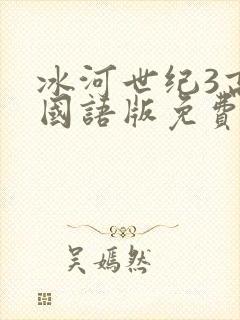 冰河世纪3高
國語版免費
吴嫣然